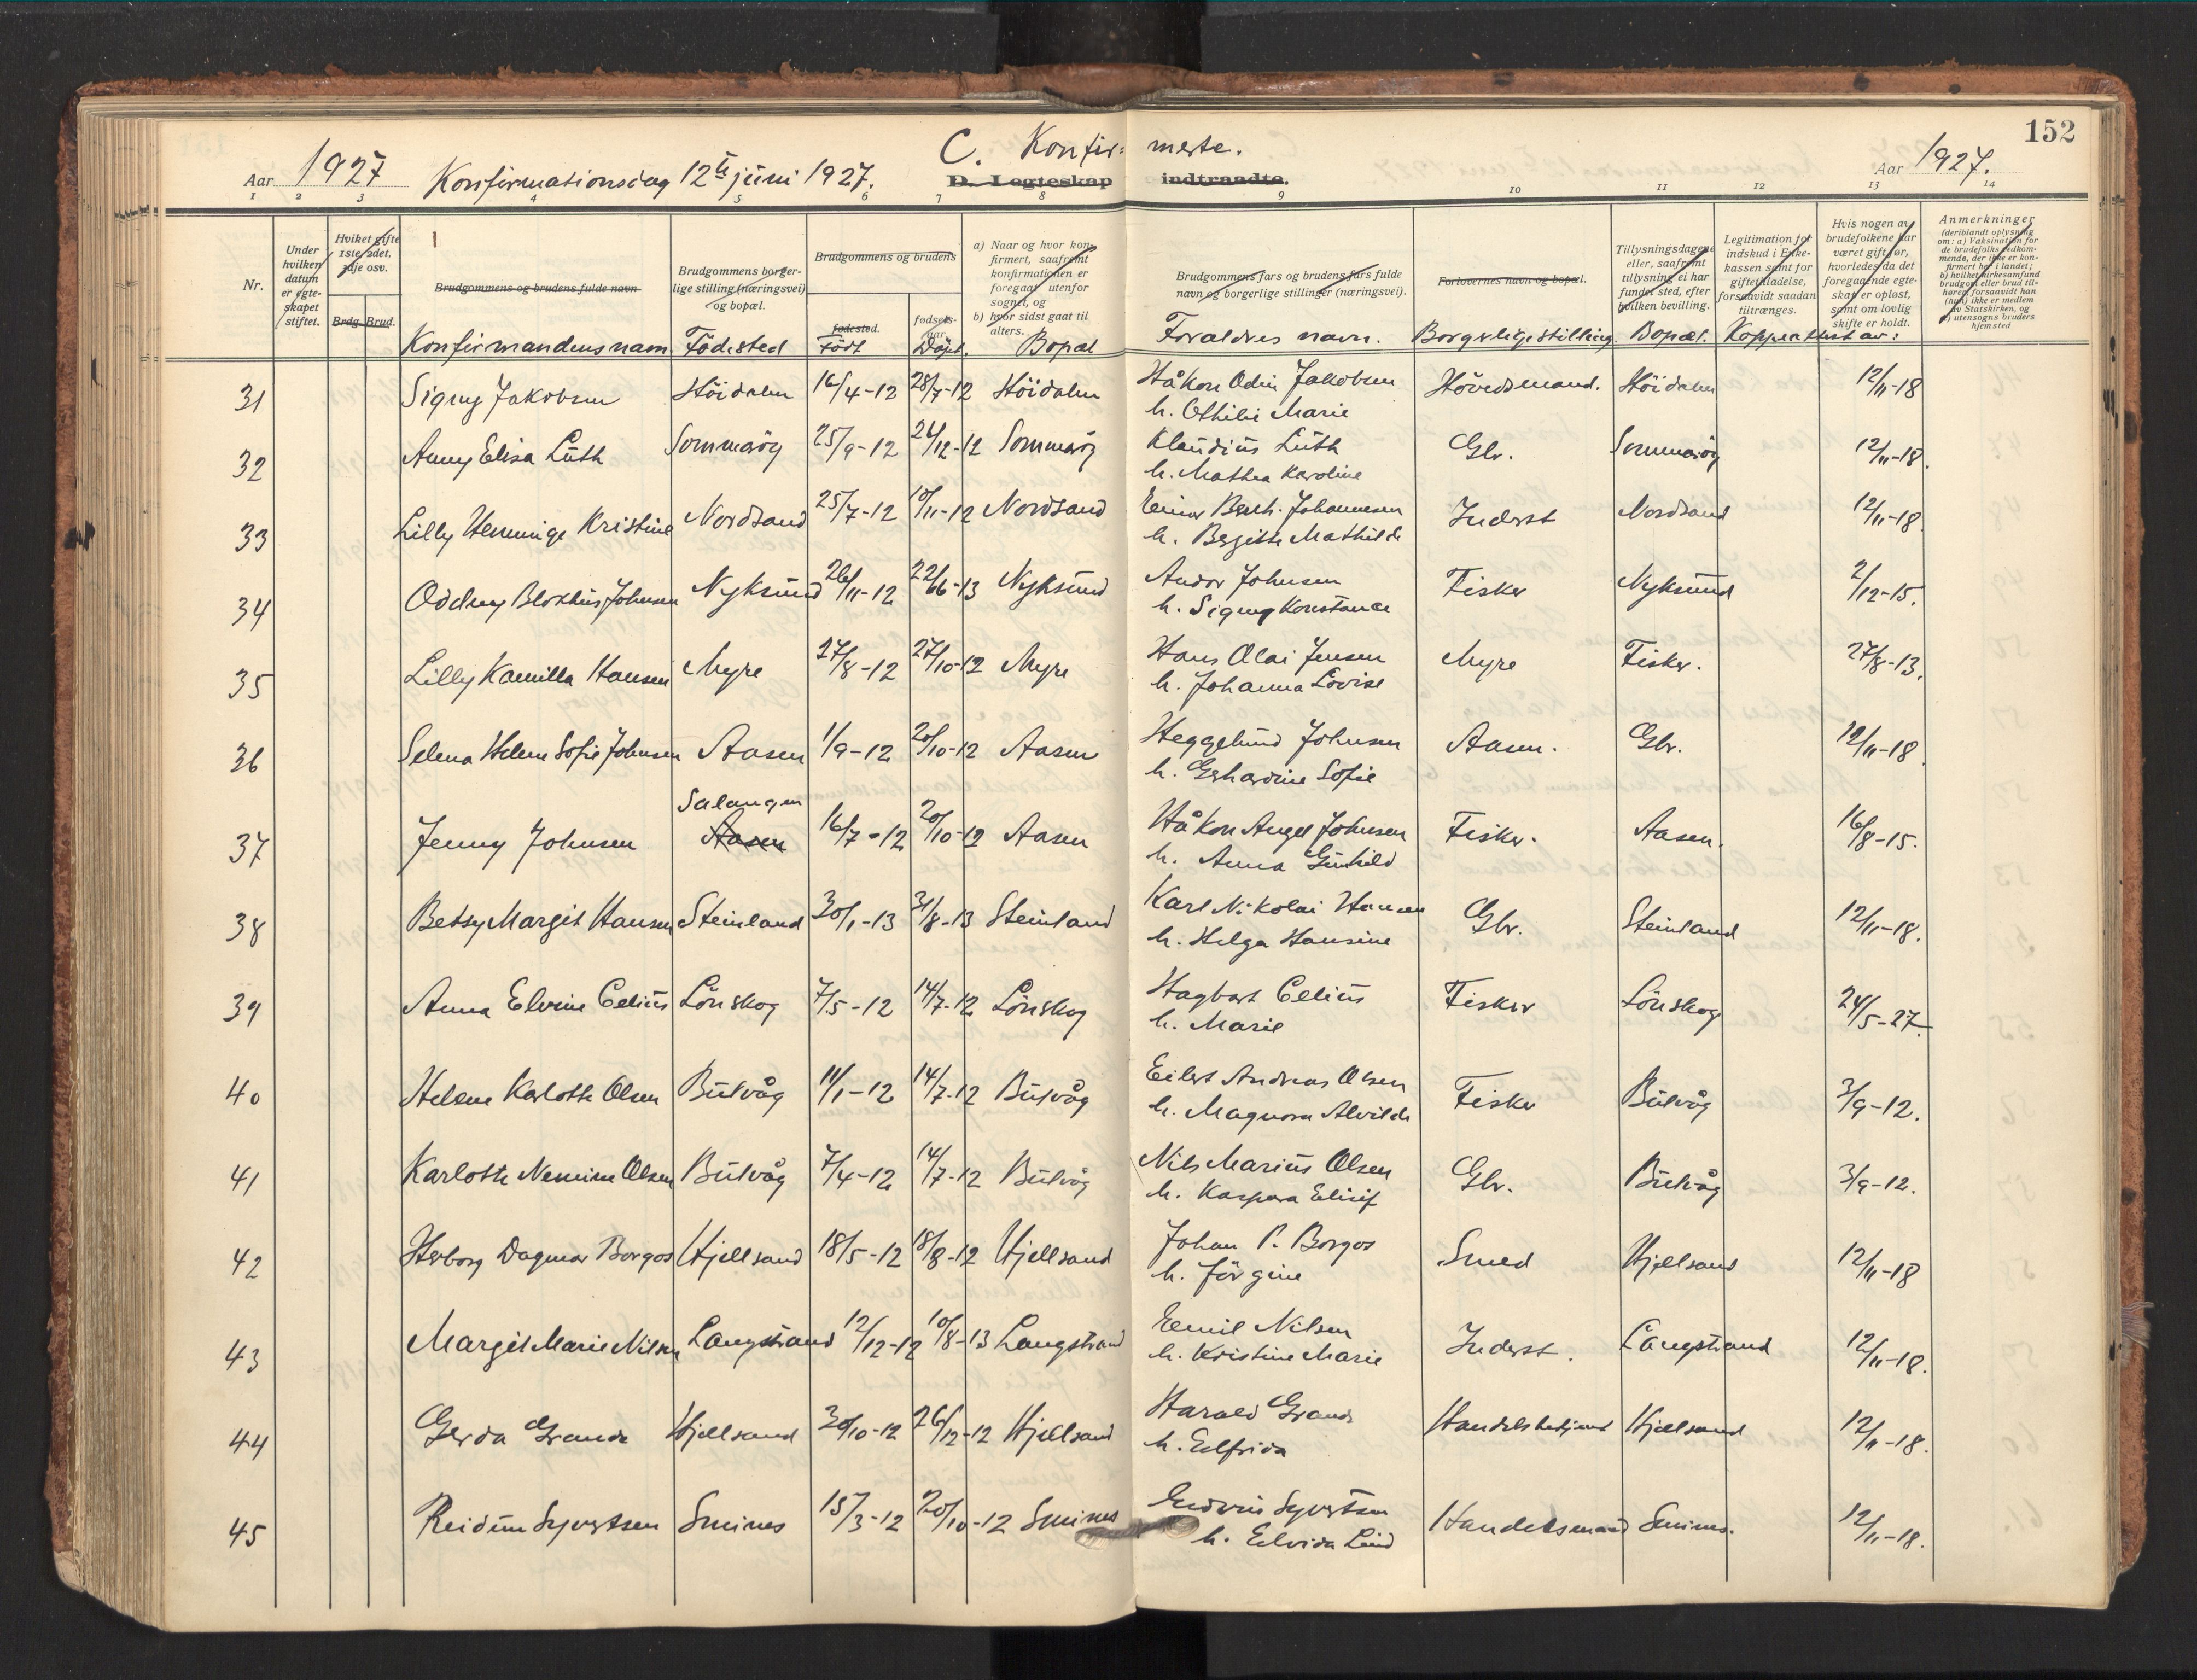 152
C. Konfir= merte.
Aar 1927 Konfirmationsdag 12te juni 1927. D. Egteskap indtraadte. Aar 1927.
1 2 3 4 5 6 7 8 9 10 11 12 13 14
Nr.
Under hvilken datum er egteskapet stiftet.
Hvilket gifte 1ste, 2det, 3dje osv.
Brdg. Brud.
Brudgommens og brudens fulde navn
Brudgommens borgerlige stilling (næringsvei) og bopæl.
Brudgommens og brudens
fødested.
fødselsaar.
a) Naar og hvor konfirmert, saafremt konfirmationen er foregaat utenfor sognet, og
b) hvor sidst gaat til alters.
Brudgommens fars og brudens fars fulde navn og borgerlige stillinger (næringsvei).
Forlovernes navn og bopæl.
Tillysningsdagene eller, saafremt tillysning ei har fundet sted, efter hvilken bevilling.
Legitimation for indskud i Enkekassen samt for giftetilladelse, forsaavidt saadan tiltrænges.
Hvis nogen av brudefolkene har været gift før, hvorledes da det foregaaende egteskap er opløst, samt om lovlig skifte er holdt.
Anmerkninger (deriblandt oplysning om: a) Vaksination for de brudefolks vedkommende, der ikke er konfirmert her i landet; b) hvilket kirkesamfund brudgom eller brud tilhører, forsaavidt han (hun) ikke er medlem av Statskirken, og c) utensogns bruders hjemsted
Konfirmandens navn Födested Födt Döpt. Bopæl Foraldres navn. Borgerlige stilling. Bopæl. Koppeattest av:
31 Signy Jakobsen Höidalen 16/4-12 28/7-12 Höidalen Håkon Odin Jakobsen Hövedsmand. Höidalen 12/11-18
h. Othilie Marie
32 Anny Elisa Lüth Sommeröy 25/9-12 26/12-12 Sommeröy Klaudius Lüth Gbr. Sommeröy 12/11-18.
h. Mathea Karoline
33 Lilly Henninge Kristine Nordsand 25/7-12 10/11-12 Nordsand Einar Bernh. Johannesen Inderst Nordsand 12/11-18.
h. Bergitte Mathilde
34 Oddny Blokhus Johnsen Nyksund 26/11-12 22/6-13 Nyksund Andor Johnsen Fisker Nyksund 2/12-15.
h. Signy Konstance
35 Lilly Kamilla Hansen Myre 27/8-12 27/10-12 Myre Hans Olai Jensen Myre Fisker. 27/8-13.
h. Johanna Lovise
36 Selena Helene Sofie Johnsen Aasen 1/9-12 20/10-12 Aasen Heggelund Johnsen Aasen. Gbr. 12/11-18.
h. Gerhardine Sofie
Salangen
37 Jenny Johnsen Aasen 16/7-12 20/10-12 Aasen Håkon Angel Johnsen Fisker. Aasen. 16/8-15.
h. Anna Gunhild
38 Betsy Margit Hansen Steinland 30/1-13 31/8-13 Steinland Karl Nikolai Hansen Gbr. Steinland 12/11-18.
h. Helga Hansine
39 Anna Elvine Celius Lönskog 7/5-12 14/7-12 Lönskog Hagbart Celius Fisker Lönskog 24/5-27.
h. Marie
40 Helene Karlotte Olsen Bütvåg 11/1-12 14/7-12 Bütvåg Eilert Andreas Olsen Fisker Bütvåg 3/9-12.
h. Magnora Alvilde
41 Karlotte Nennine Olsen Bütvåg 7/4-12 14/7-12 Bütvåg Nils Marius Olsen Gbr. Bütvåg 3/9-12.
h. Kaspara Elisif
42 Herborg Dagmar Borgos Hjellsand 18/5-12 18/8-12 Hjellsand Johan P. Borgos Smed Hjellsand 12/11-18
h. Jörgine
43 Margit Marie Nilsen Langstrand 12/12-12 10/8-13 Langstrand Eemil Nilsen Inderst. Langstrand 12/11-18.
h. Kristine Marie
44 Gerda Grande Hjellsand 30/10-12 26/12-12 Hjellsand Harald Grande Handelsbetjent Hjellsand 12/11-18.
h. Elfrida
45 Reidun Syvertsen Smines 15/3-12 20/10-12 Smines Endvin Syvertsen Handelsmand Smines. 12/11-18.
h. Elvida Lind